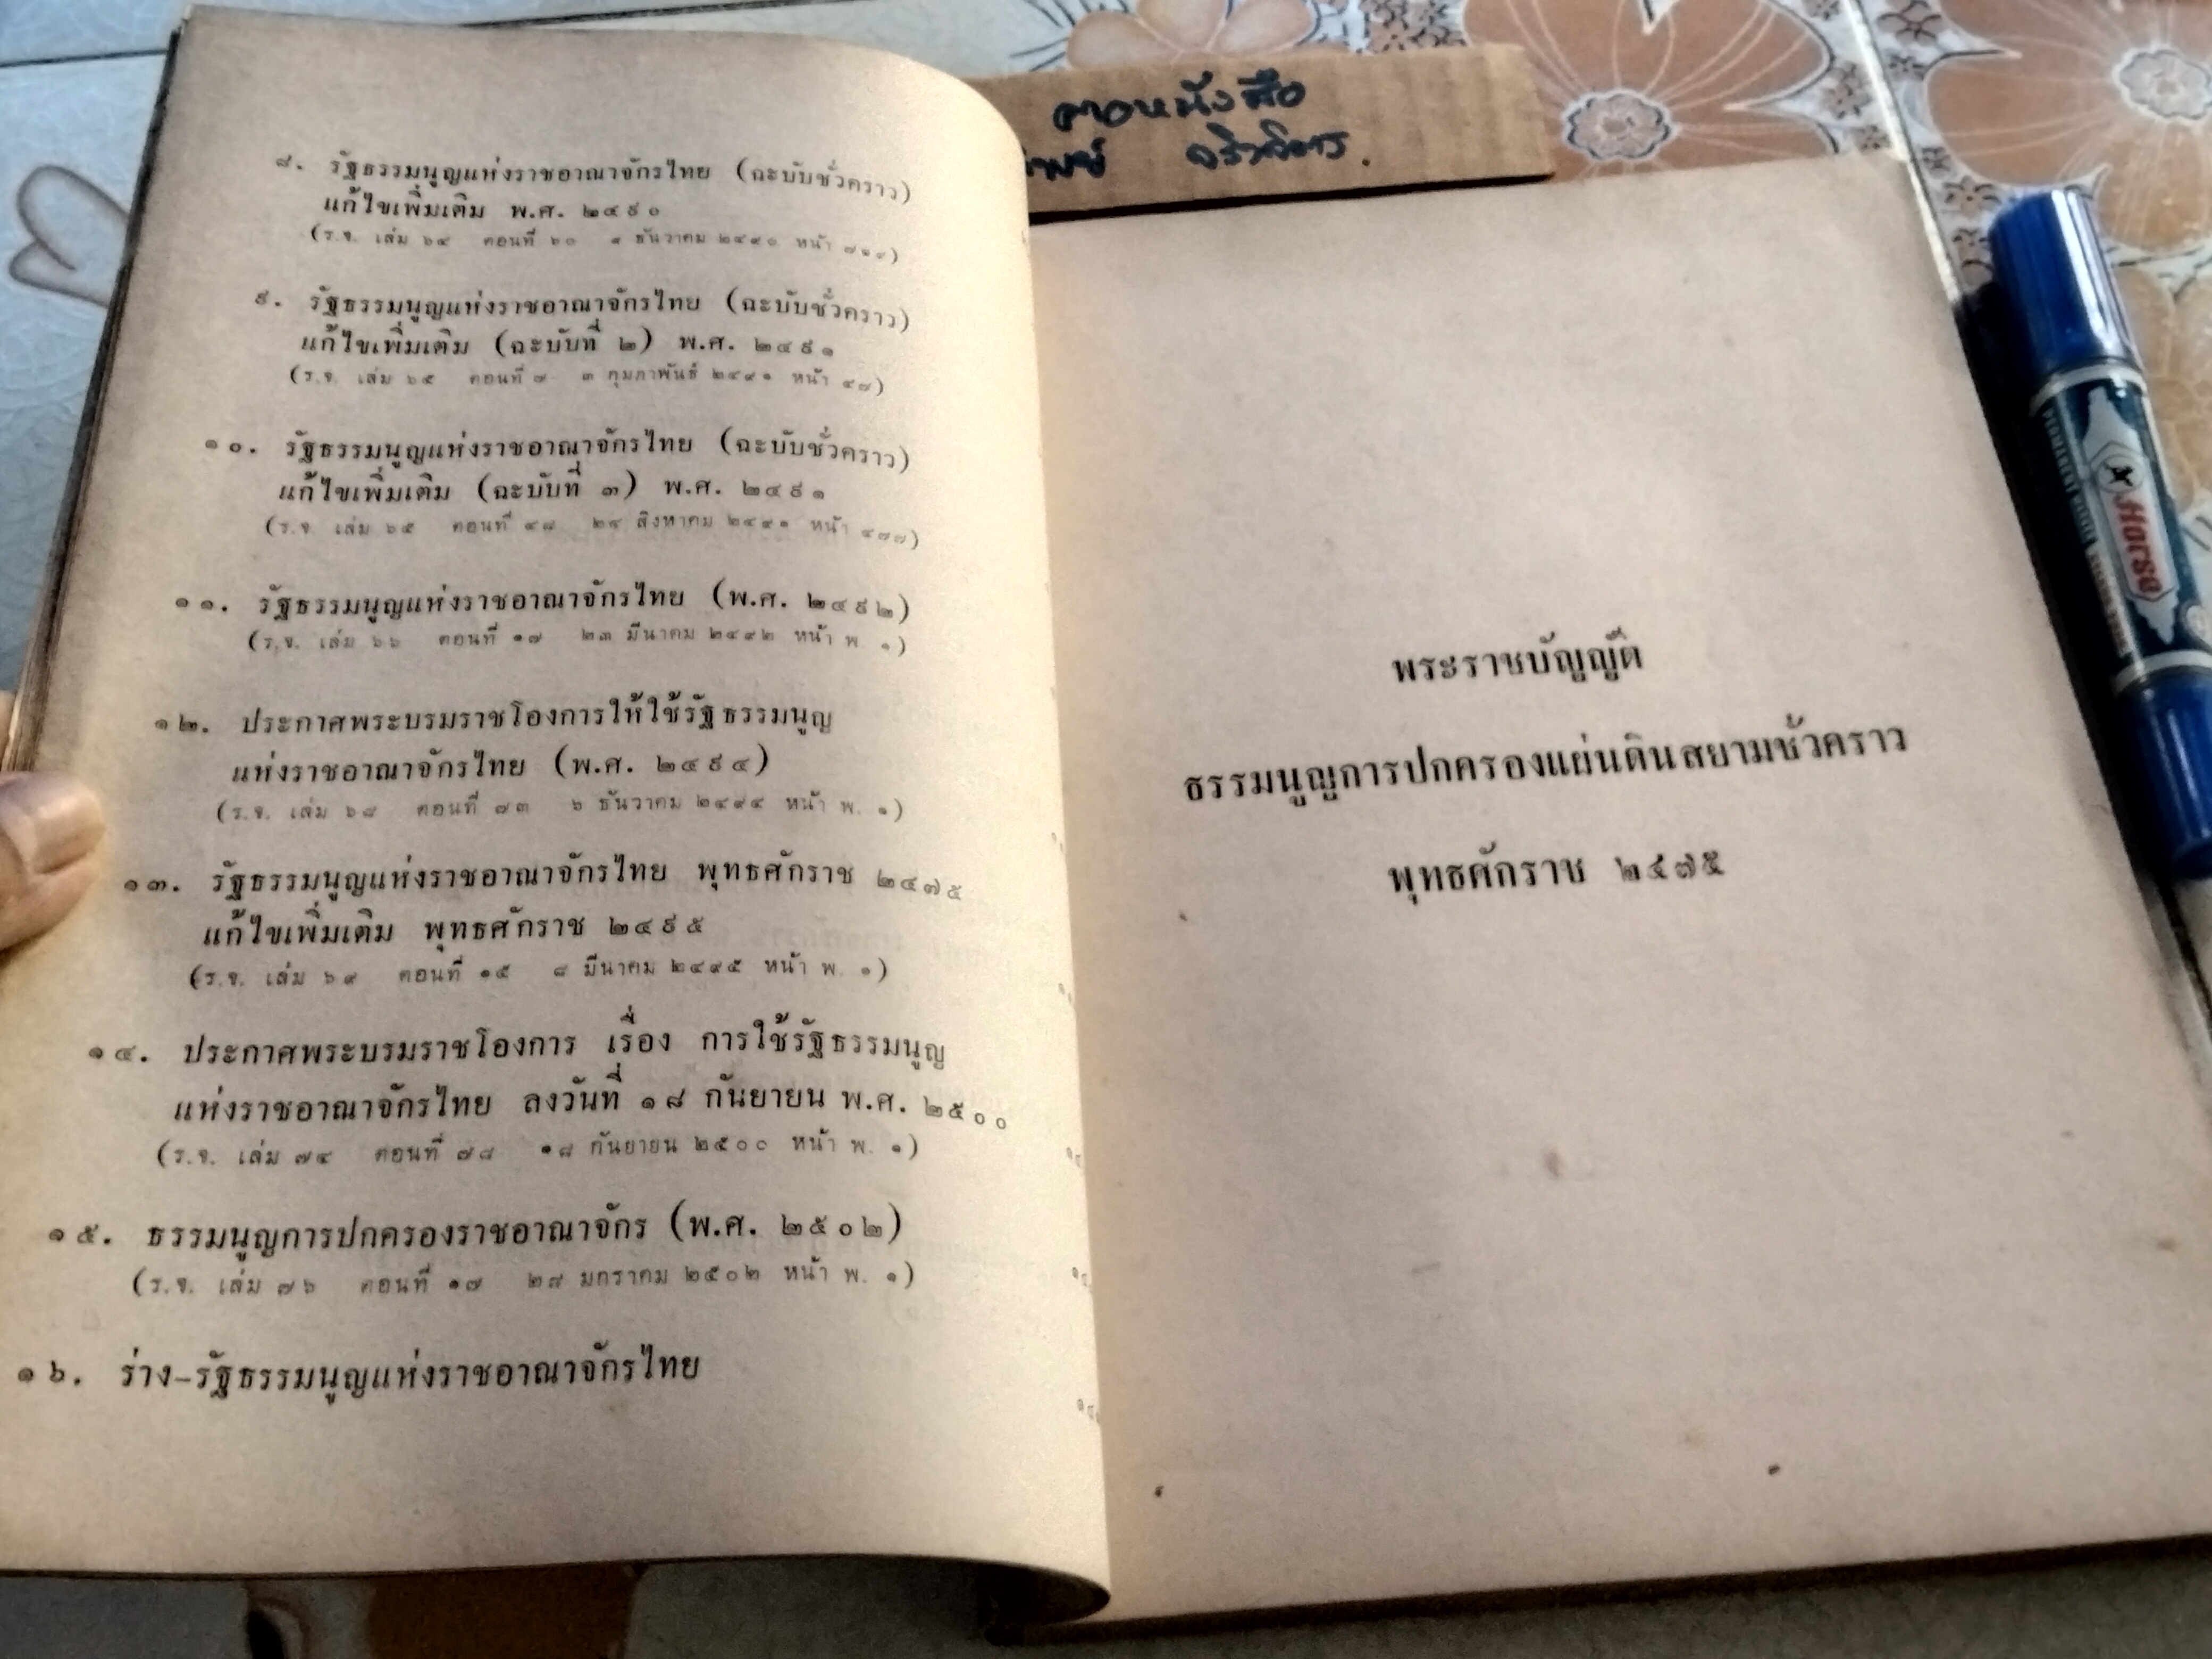 ๘. รัฐธรรมนูญแห่งราชอาณาจักรไทย (ฉะบับชั่วคราว)
แก้ไขเพิ่มเติม พ.ศ. ๒๔๙๐
(ร.จ. เล่ม ๖๔ ตอนที่ ๖๐ ๙ ธันวาคม ๒๔๙๐ หน้า ๗๑๙)
๙. รัฐธรรมนูญแห่งราชอาณาจักรไทย (ฉะบับชั่วคราว)
แก้ไขเพิ่มเติม (ฉะบับที่ ๒) พ.ศ. ๒๔๙๑
(ร.จ. เล่ม ๖๕ ตอนที่ ๗ ๓ กุมภาพันธ์ ๒๔๙๑ หน้า ๔๗)
๑๐. รัฐธรรมนูญแห่งราชอาณาจักรไทย (ฉะบับชั่วคราว)
แก้ไขเพิ่มเติม (ฉะบับที่ ๓) พ.ศ. ๒๔๙๑
(ร.จ. เล่ม ๖๕ ตอนที่ ๔๘ ๒๔ สิงหาคม ๒๔๙๑ หน้า ๔๗๗)
๑๑. รัฐธรรมนูญแห่งราชอาณาจักรไทย (พ.ศ. ๒๔๙๒)
(ร.จ. เล่ม ๖๖ ตอนที่ ๑๗ ๒๓ มีนาคม ๒๔๙๒ หน้า พ. ๑)
๑๒. ประกาศพระบรมราชโองการให้ใช้รัฐธรรมนูญ
แห่งราชอาณาจักรไทย (พ.ศ. ๒๔๙๔)
(ร.จ. เล่ม ๖๘ ตอนที่ ๗๓ ๖ ธันวาคม ๒๔๙๔ หน้า พ. ๑)
๑๓. รัฐธรรมนูญแห่งราชอาณาจักรไทย พุทธศักราช ๒๔๗๕
แก้ไขเพิ่มเติม พุทธศักราช ๒๔๙๕
(ร.จ. เล่ม ๖๙ ตอนที่ ๑๕ ๘ มีนาคม ๒๔๙๕ หน้า พ. ๑)
๑๔. ประกาศพระบรมราชโองการ เรื่อง การใช้รัฐธรรมนูญ
แห่งราชอาณาจักรไทย ลงวันที่ ๑๘ กันยายน พ.ศ. ๒๕๐๐
(ร.จ. เล่ม ๗๔ ตอนที่ ๗๘ ๑๘ กันยายน ๒๕๐๐ หน้า พ. ๑)
๑๕. ธรรมนูญการปกครองราชอาณาจักร (พ.ศ. ๒๕๐๒)
(ร.จ. เล่ม ๗๖ ตอนที่ ๑๗ ๒๘ มกราคม ๒๕๐๒ หน้า พ. ๑)
๑๖. ร่าง-รัฐธรรมนูญแห่งราชอาณาจักรไทย
พระราชบัญญัติ
ธรรมนูญการปกครองแผ่นดินสยามชั่วคราว
พุทธศักราช ๒๔๗๕
หนังสือ
ตราม้า